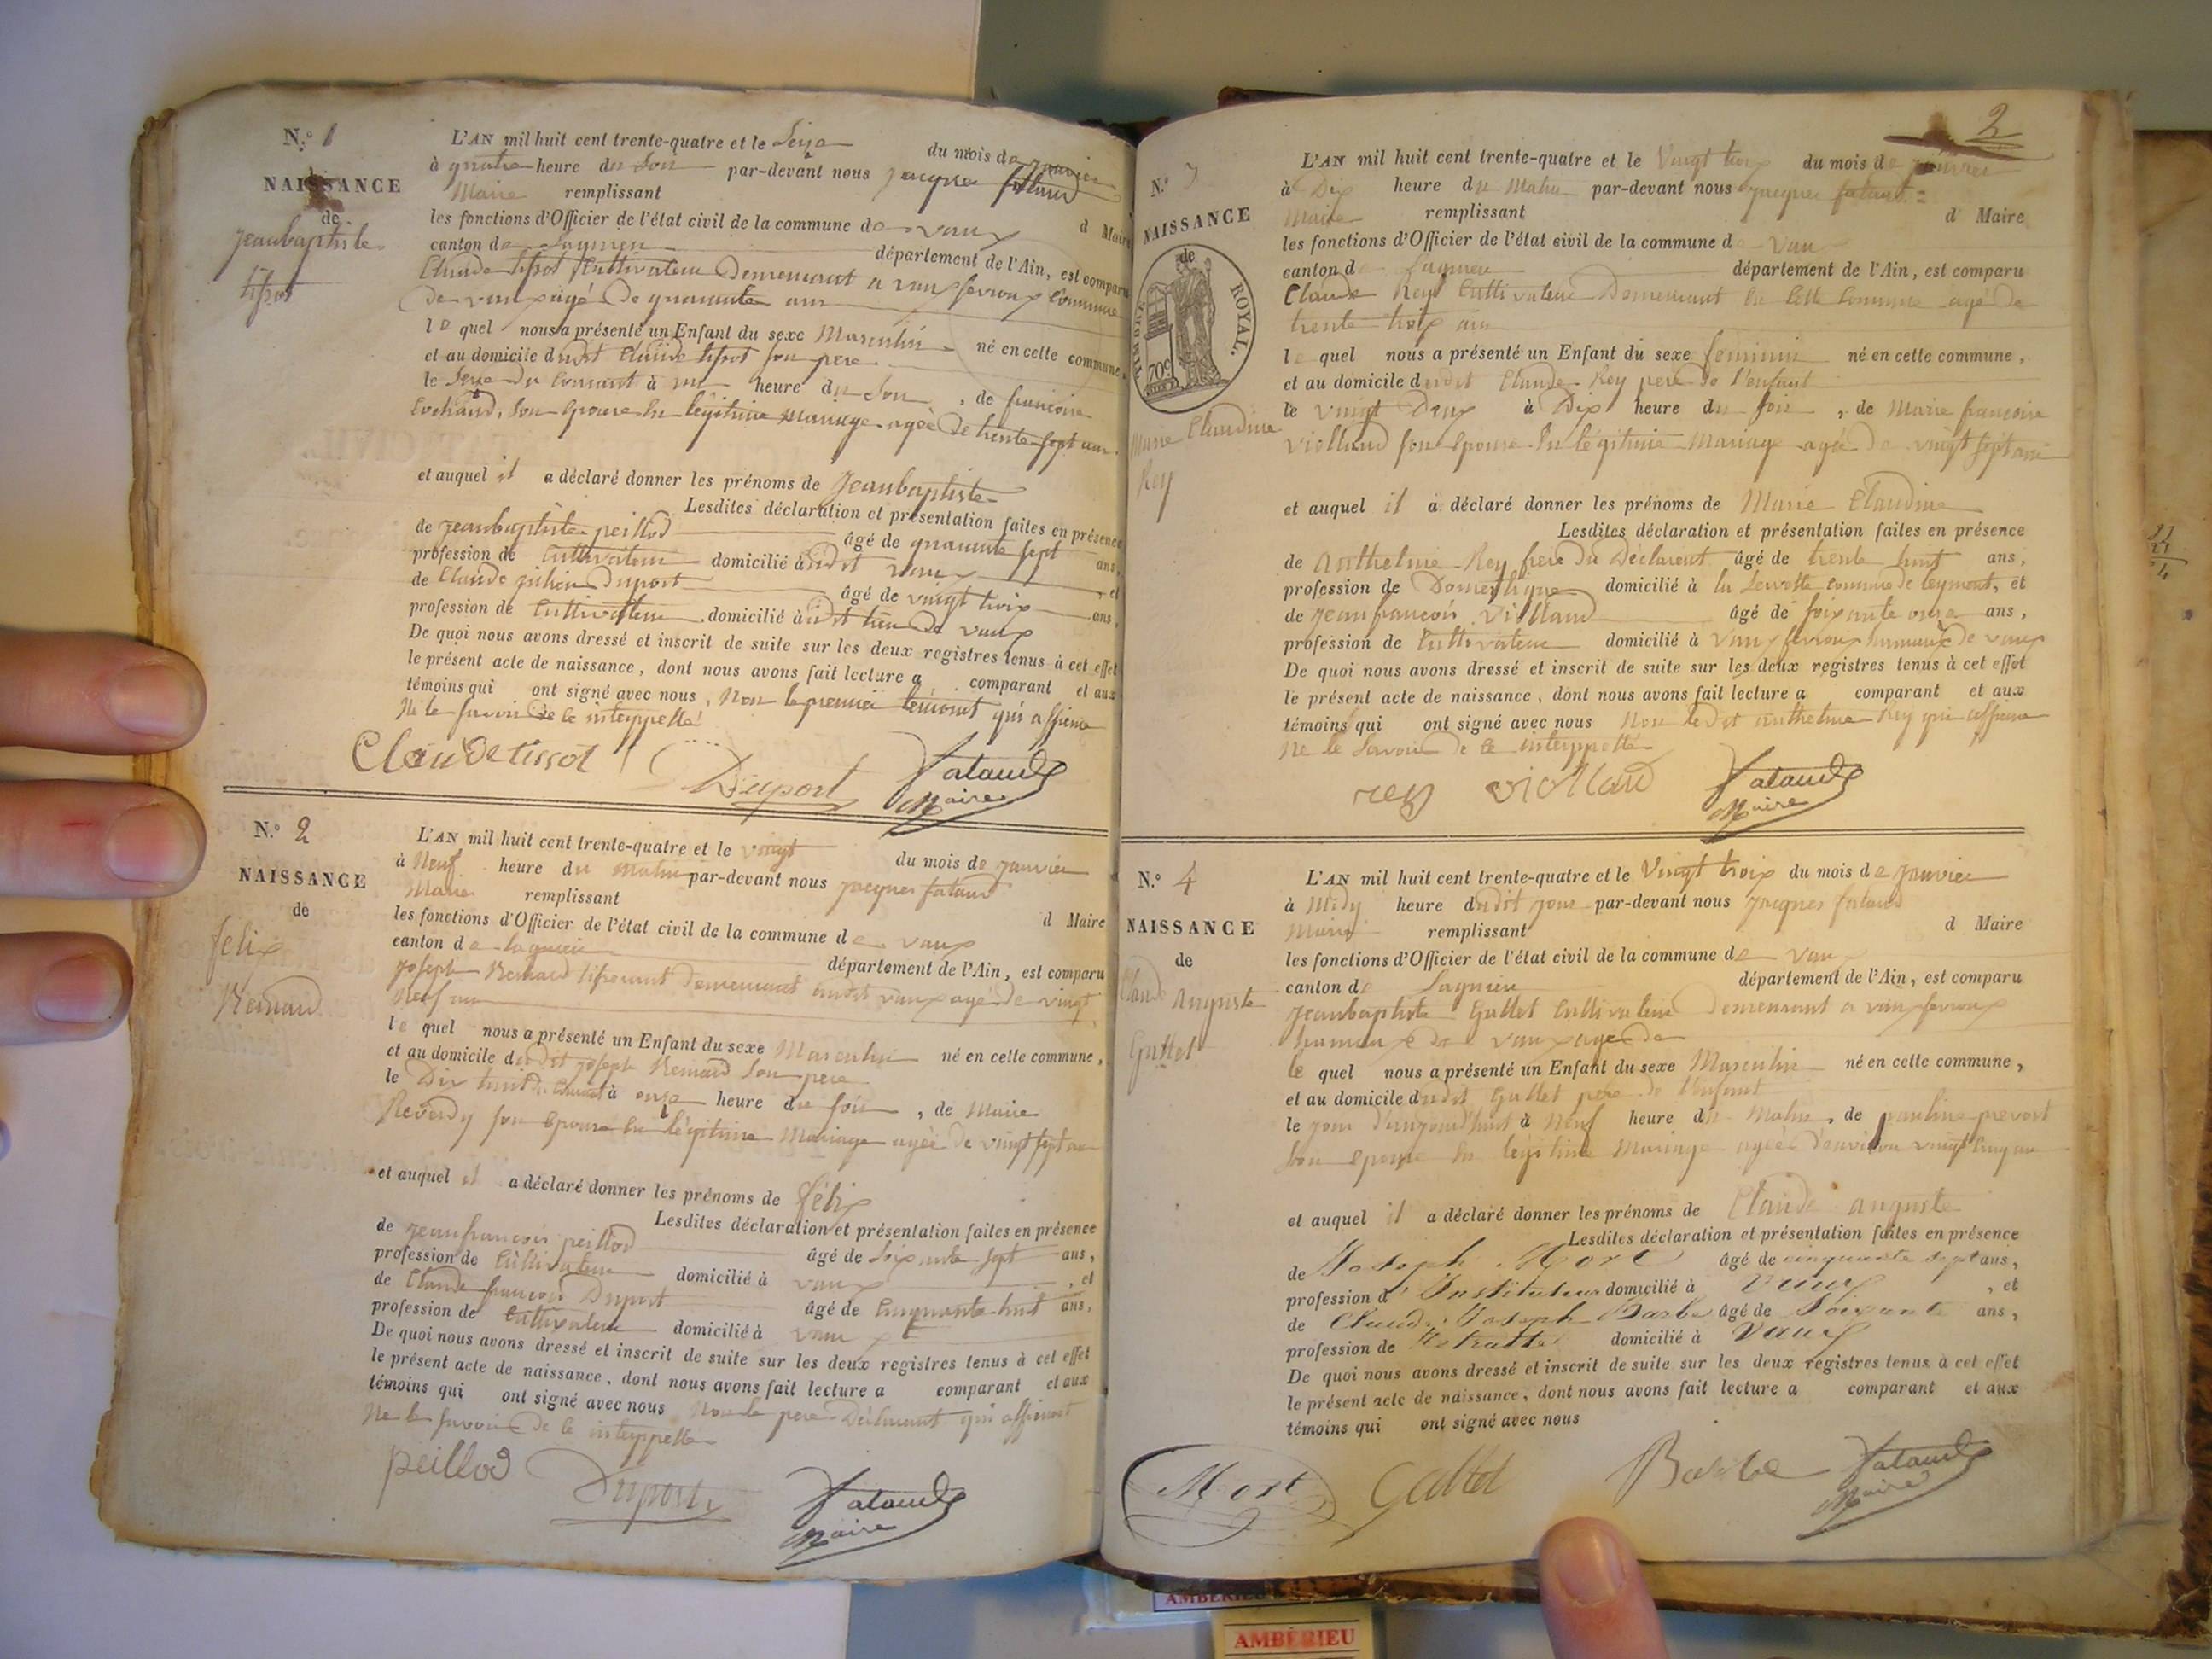 N.º 1
NAISSANCE
de
jeanbaptiste
tissot
L'AN mil huit cent trente-quatre et le Seize du mois de janvier
à quatre heure du Soir par-devant nous jacques fataud
Maire remplissant d Maire
les fonctions d'Officier de l'état civil de la commune de vaux
canton de Lagnieu département de l'Ain, est comparu
Claude tissot Cultivateur Demeurant a vaux fevroux Commune
De vaux agé De quarante ans
le quel nous a présenté un Enfant du sexe Masculin né en cette commune,
et au domicile dudit Claude tissot son pere
le Seize du Courant à une heure du Soir, de francoise
Cochand, son Epouse En légitime Mariage agée De trente sept ans
et auquel il a déclaré donner les prénoms de jeanbaptiste
Lesdites déclaration et présentation faites en présence
de jeanbaptiste peillod âgé de quarante sept ans,
profession de Cultivateur domicilié à udit vaux, et
de Claude julien Duport âgé de vingt trois ans,
profession de Cultivateur domicilié à udit lieu De vaux
De quoi nous avons dressé et inscrit de suite sur les deux registres tenus à cet effet
le présent acte de naissance, dont nous avons fait lecture a comparant et aux
témoins qui ont signé avec nous, Non le premier temoint qui a affirmé
Ne le savoir De ce interppellé
Claude tissot Duport fataud
Maire
N.º 2
NAISSANCE
de
felix
Renaud
L'AN mil huit cent trente-quatre et le vingt du mois de janvier
à Neuf heure du matin par-devant nous jacques fataud
Maire remplissant d Maire
les fonctions d'Officier de l'état civil de la commune de vaux
canton de lagnieu département de l'Ain, est comparu
joseph Renaud tisserant Demeurant audit vaux agé de vingt
Neuf ans
le quel nous a présenté un Enfant du sexe Masculin né en cette commune,
et au domicile dudit joseph Renaud Son pere
le Dix huit du Courant à onze heure du soir, de Marie
Reverdy son Epouse En légitime Mariage agée de vingt sept ans
et auquel il a déclaré donner les prénoms de félix
Lesdites déclaration et présentation faites en présence
de jeanfrancois peillod âgé de soixante sept ans,
profession de Cultivateur domicilié à vaux, et
de Claude francois Duport âgé de Cinquante huit ans,
profession de Cultivateur domicilié à vaux
De quoi nous avons dressé et inscrit de suite sur les deux registres tenus à cet effet
le présent acte de naissance, dont nous avons fait lecture a comparant et aux
témoins qui ont signé avec nous Non le pere Déclarant qui affirmé
Ne le savoir De ce interppellé
peillod Duport fataud
Maire
2
N.º 3
NAISSANCE
de
TIMBRE ROYAL.
70c
Marie Claudine
Rey
L'AN mil huit cent trente-quatre et le Vingt trois du mois de janvier
à Dix heure du Matin par-devant nous jacques fataud
Maire remplissant d Maire
les fonctions d'Officier de l'état civil de la commune d Vaux
canton d Lagnieu département de l'Ain, est comparu
Claude Rey Cultivateur Demeurant En Cette Commune agé de
trente trois ans
le quel nous a présenté un Enfant du sexe feminin né en cette commune,
et au domicile dudit Claude Rey pere de l'enfant
le vingt Deux à Dix heure du soir, de Marie francoise
Viollaud son Epouse En légitime Mariage agée de vingt sept ans
et auquel il a déclaré donner les prénoms de Marie Claudine
Lesdites déclaration et présentation faites en présence
de Anthelme Rey frere du Déclarent âgé de trente huit ans,
profession de Domestique domicilié à la commune de leyment, et
de jeanfrancois Viollaud âgé de soixante onze ans,
profession de Cultivateur domicilié à vaux fevroux hammeaux de vaux
De quoi nous avons dressé et inscrit de suite sur les deux registres tenus à cet effet
le présent acte de naissance, dont nous avons fait lecture a comparant et aux
témoins qui ont signé avec nous Non ledit anthelme Rey qui affirmé
Ne le Savoir de ce interppellé
rey viollaud fataud
Maire
N.º 4
NAISSANCE
de
Claude auguste
Guttet
L'AN mil huit cent trente-quatre et le Vingt trois du mois de janvier
à Midy heure dudit jour par-devant nous jacques fataud
Maire remplissant d Maire
les fonctions d'Officier de l'état civil de la commune de vaux
canton de Lagnieu département de l'Ain, est comparu
jeanbaptiste Guttet Cultivateur Demeurant a vaux fevroux
hammeaux de vaux agé de
le quel nous a présenté un Enfant du sexe Masculin né en cette commune,
et au domicile dudit Guttet pere de l'enfant
le jour d'aujourdhuit à Neuf heure du Matin, de pauline prevost
son epouse En légitime Mariage agée d'environ vingt Cinq ans
et auquel il a déclaré donner les prénoms de Claude auguste
Lesdites déclaration et présentation faites en présence
de Joseph Mort âgé de cinquante sept ans,
profession d' Instituteur domicilié à Vaux, et
de Claude Joseph Barbe âgé de Soixante ans,
profession de Retraité domicilié à Vaux
De quoi nous avons dressé et inscrit de suite sur les deux registres tenus à cet effet
le présent acte de naissance, dont nous avons fait lecture a comparant et aux
témoins qui ont signé avec nous
Mort Guttet Barbe fataud
Maire
AMBÉRIEU
AMBÉRIEU